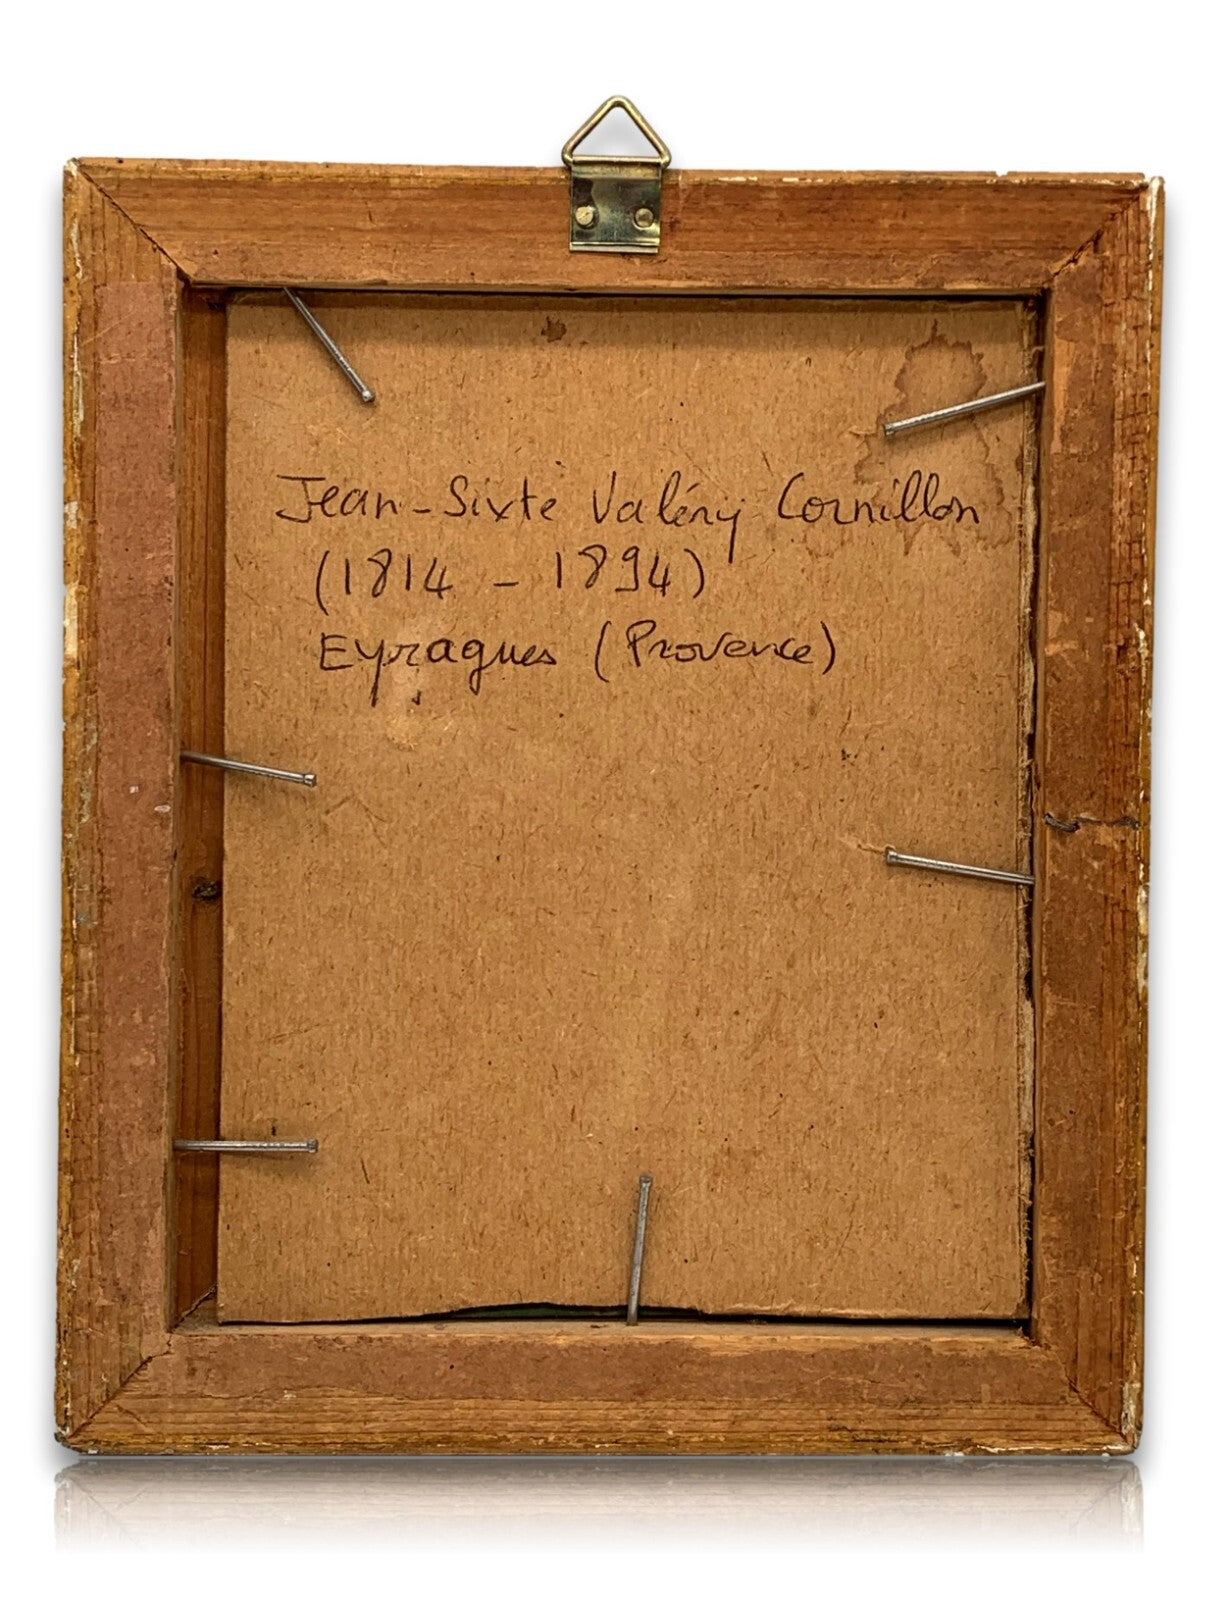 Jean-Sixte Valéry Cornillon
(1814 - 1894)
Eyragues (Provence)